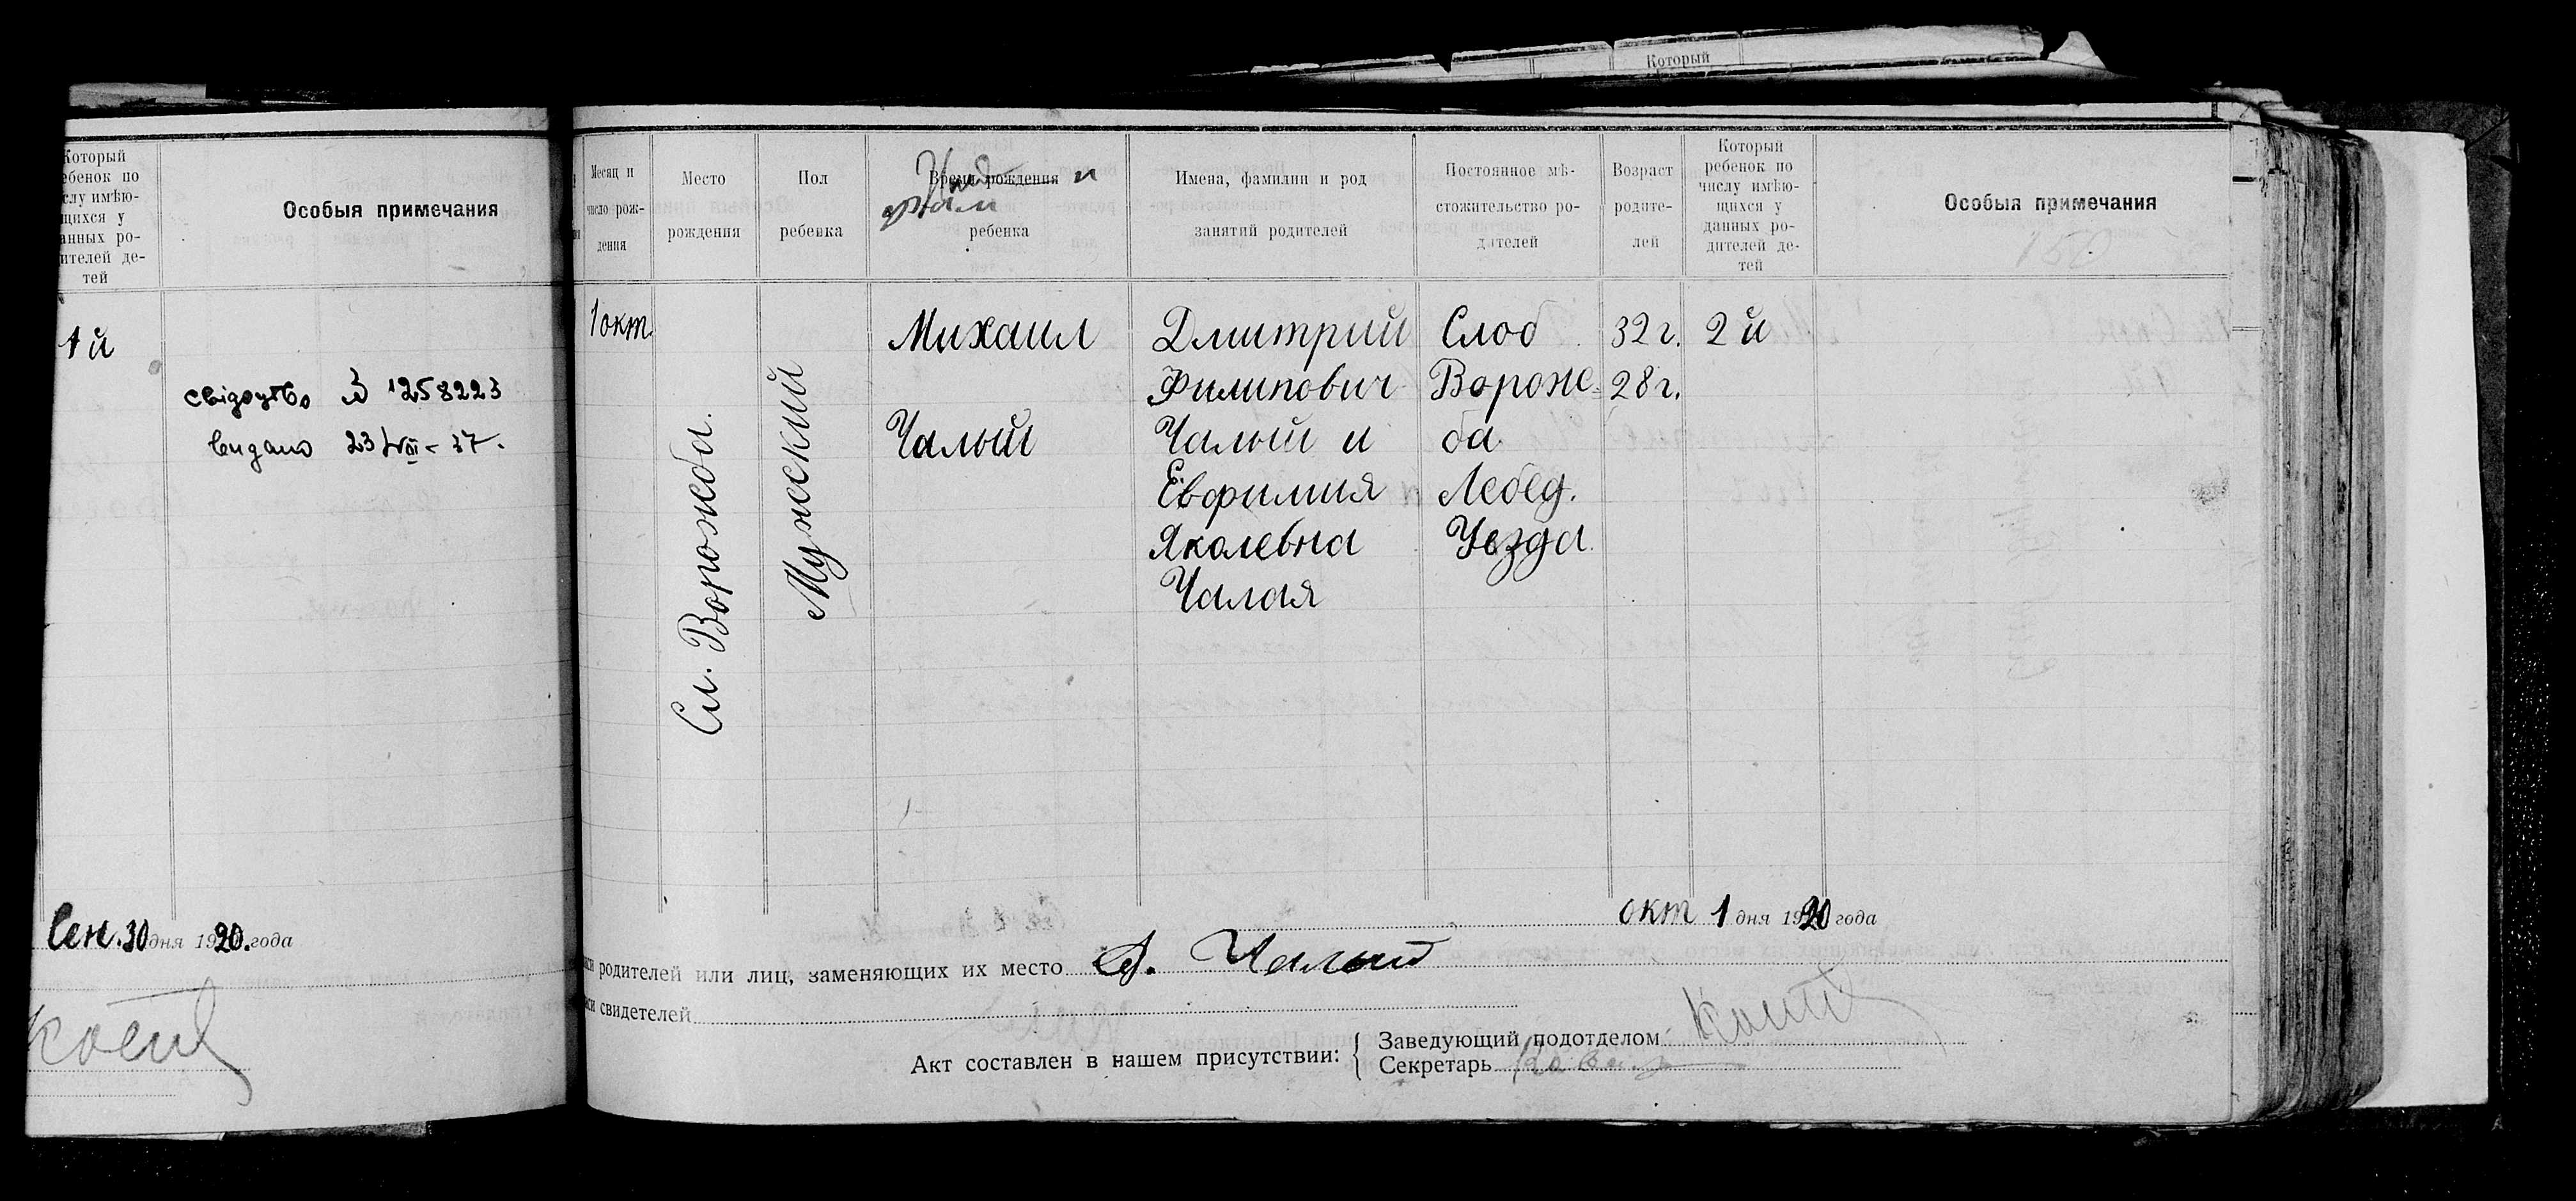 Который
Который
ебенок по
слу имѣю-
щихся у
анных ро-
ителей де-
тей
Особыя примечания
1й
свідоцтво № 1258223
видано 23/VIII - 37.
Сен. 30 дня 1920. года
Месяц и
число рож-
дения
Место
рождения
Пол
ребенка
Время рождения и
фам
ребенка
Имена, фамилии и род
занятий родителей
Постоянное мѣ-
стожительство ро-
дителей
Возраст
родите-
лей
Который
ребенок по
числу имѣю-
щихся у
данных ро-
дителей де-
тей
Особыя примечания
150
1 окт.
Сл. Ворожеба.
Мужеский
Михаил
Чалый
Дмитрий
Филипович
Чалый и
Евфимия
Яколевна
Чалая
Слоб
Вороже-
ба
Лебед.
Уезда.
32 г.
28 г.
2 й
окт 1 дня 1920 года
родителей или лиц, заменяющих их место Д. Чалый
свидетелей
Акт составлен в нашем присутствии:
Заведующий подотделом
Секретарь